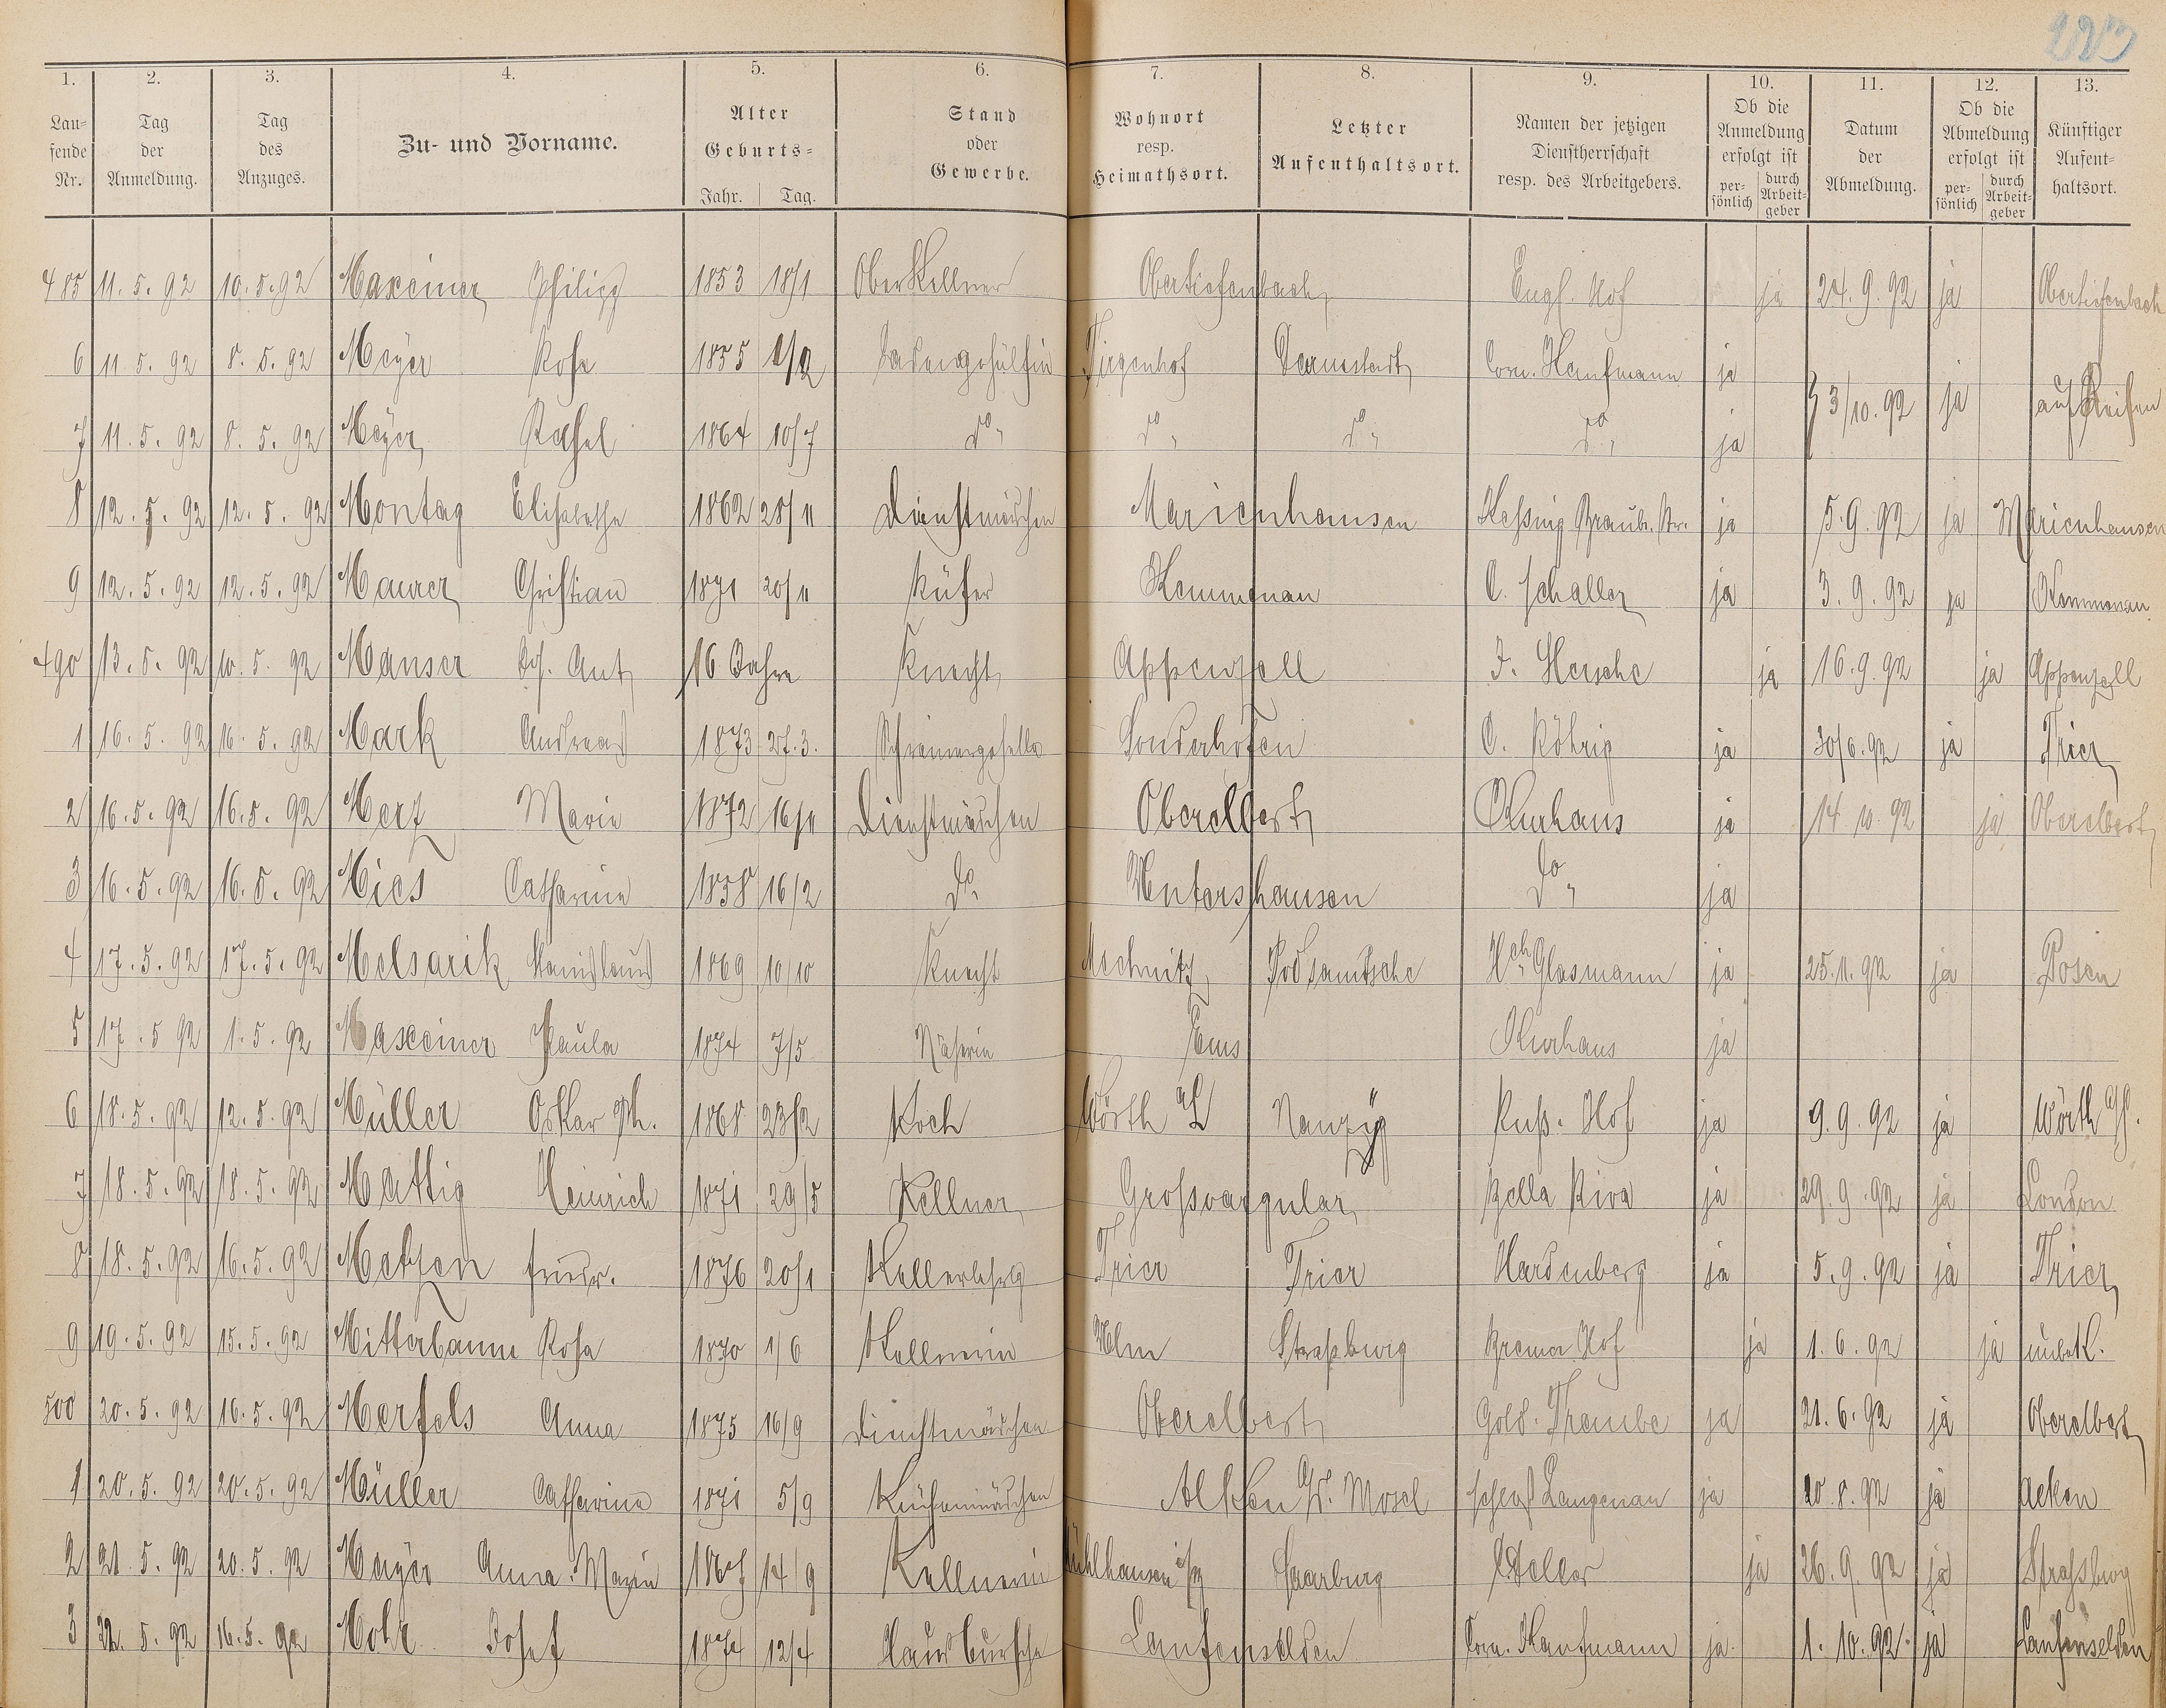 223
1. 2. 3. 4. 5. 6. 7. 8. 9. 10. 11. 12. 13.
Laufende Nr. Tag der Anmeldung. Tag des Anzuges. Zu- und Vorname. Alter Geburts- Jahr. Tag. Stand oder Gewerbe. Wohnort resp. Heimathsort. Letzter Aufenthaltsort. Namen der jetzigen Dienstherrschaft resp. des Arbeitgebers. Ob die Anmeldung erfolgt ist persönlich durch Arbeitgeber Datum der Abmeldung. Ob die Abmeldung erfolgt ist persönlich durch Arbeitgeber Künftiger Aufenthaltsort.
485 11. 5. 92 10. 5. 92 Maxeiner Philipp 1853 18/1 Oberkellner Obertiefenbach Engl. Hof ja 24. 9. 92 ja Obertiefenbach
6 11. 5. 92 8. 5. 92 Meyer Rosa 1855 Ladengehülfin Darmstadt Corn. Kaufmann ja 3/10. 92 ja auf Reisen
7 11. 5. 92 8. 5. 92 Meyer Rahel 1864 10/7 do do do do ja
8 12. 5. 92 12. 5. 92 Montag Elisabethe 1862 28/11 Dienstmädchen Marienhausen ja 5. 9. 92 ja Marienhausen
9 12. 5. 92 12. 5. 92 Maurer Christian 1871 20/11 Küfer Kemmenau C. Schaller ja 3. 9. 92 ja Kemmenau
490 13. 5. 92 10. 5. 92 Manser Jos. Ant 16 Jahre Knecht Appenzell J. Hersche ja 16. 9. 92 ja Appenzell
1 16. 5. 92 16. 5. 92 Mark Andreas 1873 27. 3. Schreinergeselle Sonderhofen C. Röhrig ja 30/6. 92 ja Trier
2 16. 5. 92 16. 5. 92 Merz Marie 1872 16/11 Dienstmädchen Oberelbert Kurhaus ja 14. 10. 92 ja Oberelbert
3 16. 5. 92 16. 5. 92 Mies Catharine 1858 16/2 do Untershausen do ja
4 17. 5. 92 17. 5. 92 Melsarik Stanislaus 1869 10/10 Knecht Mechnitz Podsamtsche Hch. Glasmann ja 25. 11. 92 ja Posen
5 17. 5 92 1. 5. 92 Maxeiner Paula 1874 7/5 Näherin Ems Kurhaus ja
6 18. 5. 92 12. 5. 92 Müller Oskar Ph. 1868 23/2 Koch Wörth Nanzig Russ. Hof ja 9. 9. 92 ja Wörth
7 18. 5. 92 18. 5. 92 Mattig Heinrich 1871 29/5 Kellner Grossvargular Bella Riva ja 29. 9. 92 ja London
8 18. 5. 92 16. 5. 92 Metzen Friedr. 1876 20/1 Kellnerlehrlg Trier Trier Hardenberg ja 5. 9. 92 ja Trier
9 19. 5. 92 15. 5. 92 Mitterbaum Rosa 1870 1/6 Kellnerin Ulm Strassburg Bremer Hof ja 1. 6. 92 ja unbek.
500 20. 5. 92 16. 5. 92 Merfels Anna 1875 16/9 Dienstmädchen Oberelbert Gold. Traube ja 21. 6. 92 ja Oberelbert
1 20. 5. 92 20. 5. 92 Müller Catharine 1871 5/9 Küchenmädchen Alken a/d. Mosel Schloß Langenau ja 20. 8. 92 ja Alken
2 21. 5. 92 20. 5. 92 Mayer Anna Marie 1867 14/9 Kellnerin Mühlhausen Saarburg ja 26. 9. 92 ja Strassburg
3 22. 5. 92 16. 5. 92 Mohr Josef 1874 12/4 Hausbursche Laufenselden Corn. Kaufmann ja 1. 10. 92. ja Laufenselden